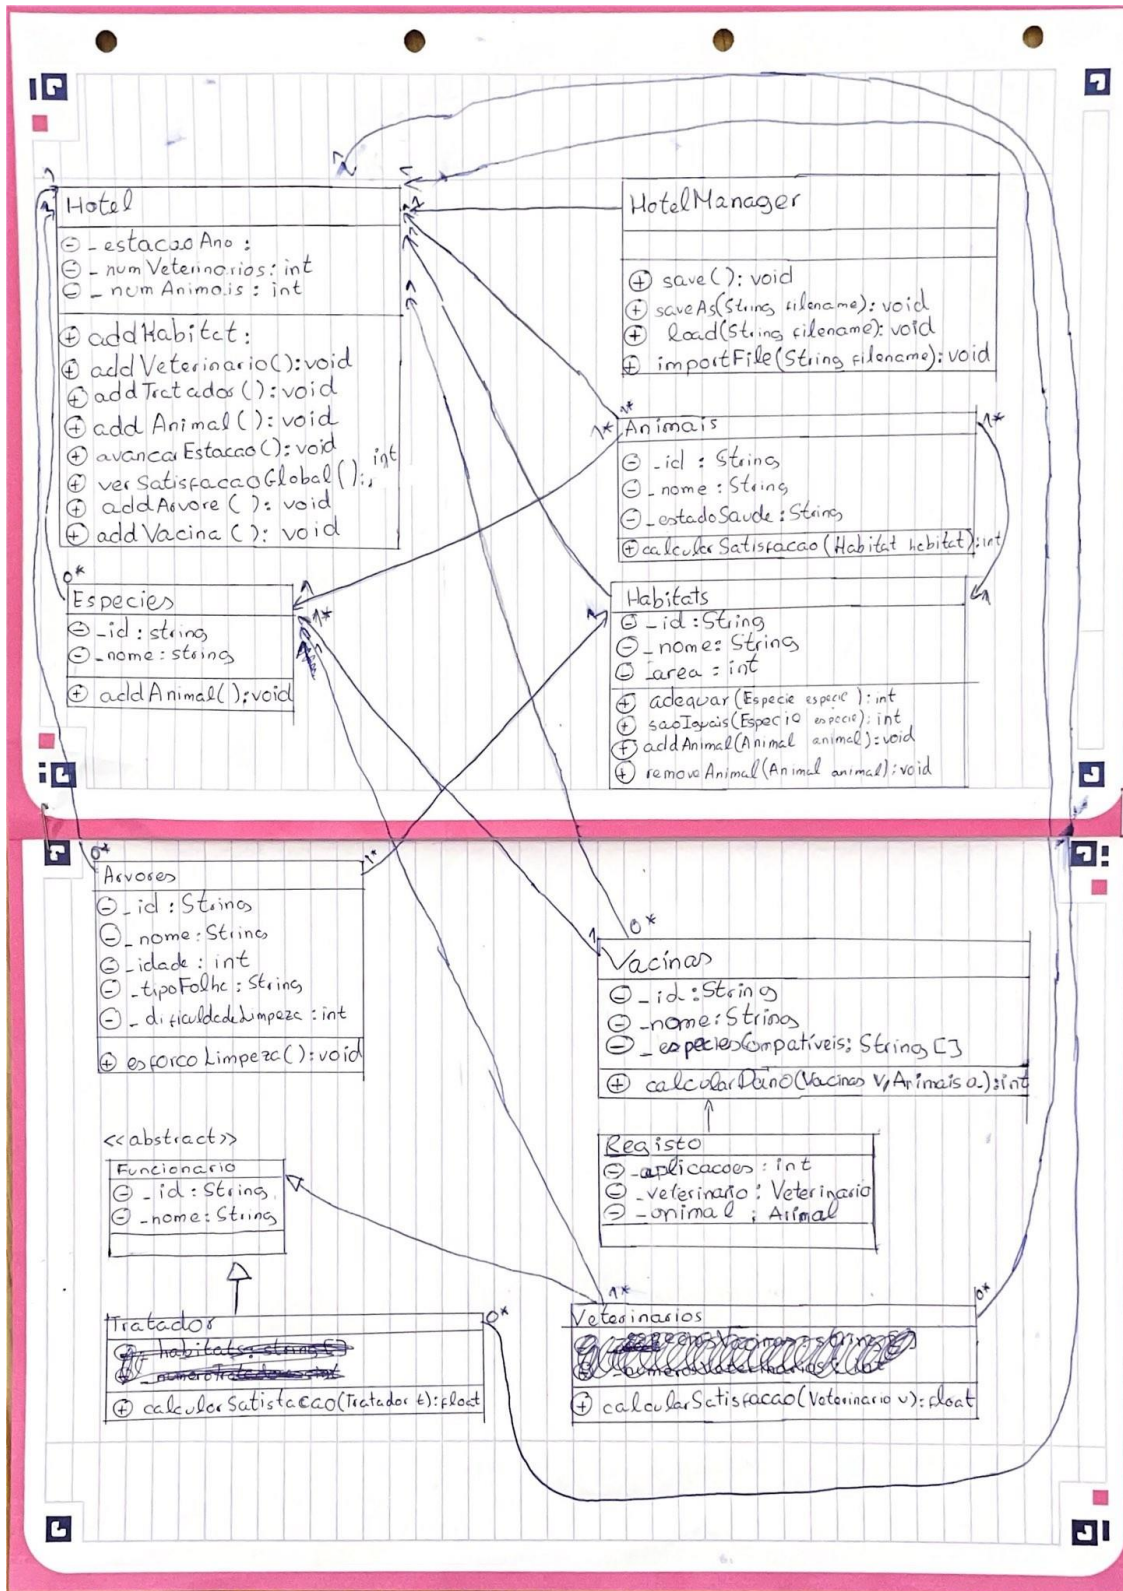 Hotel
⊖ _estacaoAno :
⊖ _numVeterinarios: int
⊖ _numAnimais : int
⊕ addHabitat:
⊕ addVeterinario():void
⊕ addTratados(): void
⊕ addAnimal(): void
⊕ avancarEstacao(): void
⊕ verSatisfacaoGlobal():, int
⊕ addArvore(): void
⊕ addVacina(): void
HotelManager
⊕ save(): void
⊕ saveAs(String filename): void
⊕ load(String filename): void
⊕ importFile(String filename): void
1*
1*
1*
Animais
⊖ _id : String
⊖ _nome : String
⊖ _estadoSaude : String
⊕ calcularSatisfacao(Habitat habitat): int
0*
Especies
1*
⊖ _id : string
⊖ _nome : string
⊕ addAnimal():void
Habitats
1
⊖ _id : String
⊖ _nome : String
⊖ _area : int
⊕ adequar(Especie especie): int
⊕ saoIguais(Especie especie): int
⊕ addAnimal(Animal animal): void
⊕ removeAnimal(Animal animal): void
0*
1*
Arvores
⊖ _id : String
⊖ _nome : String
⊖ _idade : int
⊖ _tipoFolha : String
⊖ _dificuldadeLimpeza : int
⊕ esforcoLimpeza(): void
1
0*
Vacinas
⊖ _id : String
⊖ _nome : String
⊖ _especiesCompatíveis: String[]
⊕ calcularDano(Vacinas v, Animais a): int
Registo
⊖ _aplicacoes : int
⊖ _veterinario : Veterinario
⊖ _animal : Animal
<<abstract>>
Funcionario
⊖ _id : String
⊖ _nome : String
Tratador
0*
_habitats: string[]
⊕ calcularSatisfacao(Tratador t): float
1*
0*
Veterinarios
⊕ calcularSatisfacao(Veterinario v): float